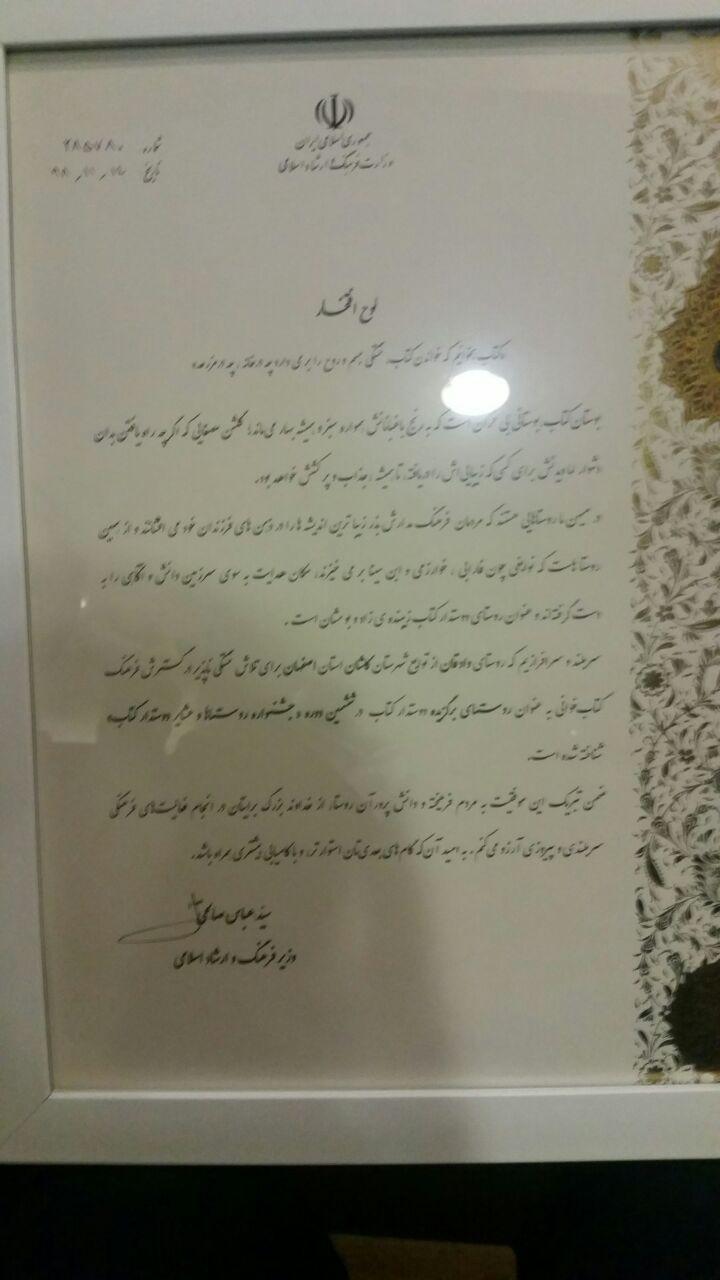 جمهوری اسلامی ایران
وزارت فرهنگ و ارشاد اسلامی
شماره
تاریخ
لوح افتخار
کتاب بخوانیم که خواندن کتاب، خستگی جسم و روح را می برد چه در خانه، چه در مزرعه
بوستان کتاب، بوستانی بی خزان است که به رنج باغبانانش همواره سبز و همیشه بهار می‌ماند؛ گلشن مصفایی که اگرچه راه یافتن بدان
دشوار برای کسی که زیبایی‌اش را دریافته، تا همیشه، جذاب و پر کشش خواهد بود.
در میهن ما روستاهایی هستند که مردمان فرهنگ مدارش بذر زیباترین اندیشه ها را در ذهن های فرزندان خود می افشانند و از همین
روستاهاست که نوابغی چون فارابی، خوارزمی و ابن سینا بر می خیزند، سکان هدایت به سوی سرزمین دانش و آگاهی را به
دست گرفته‌اند و عنوان روستای دوستدار کتاب زیبنده‌ی زاد و بومشان است.
سربلند و سرافرازیم که روستای وادقان از توابع شهرستان کاشان استان اصفهان برای تلاش خستگی ناپذیر در گسترش فرهنگ
کتاب‌خوانی به عنوان روستای برگزیده دوستدار کتاب در ششمین دوره جشنواره روستاها و عشایر دوستدار کتاب»
شناخته شده است.
ضمن تبریک این موفقیت به مردم فرهیخته و دانش پرور آن روستا، از خداوند بزرگ برایتان در انجام فعالیت‌های فرهنگی
سربلندی و پیروزی آرزو می‌کنم. به امید آن‌که گام‌های بعدی‌تان استوارتر، و با کامیابی بیشتری همراه باشد.
سید عباس صالحی
وزیر فرهنگ و ارشاد اسلامی